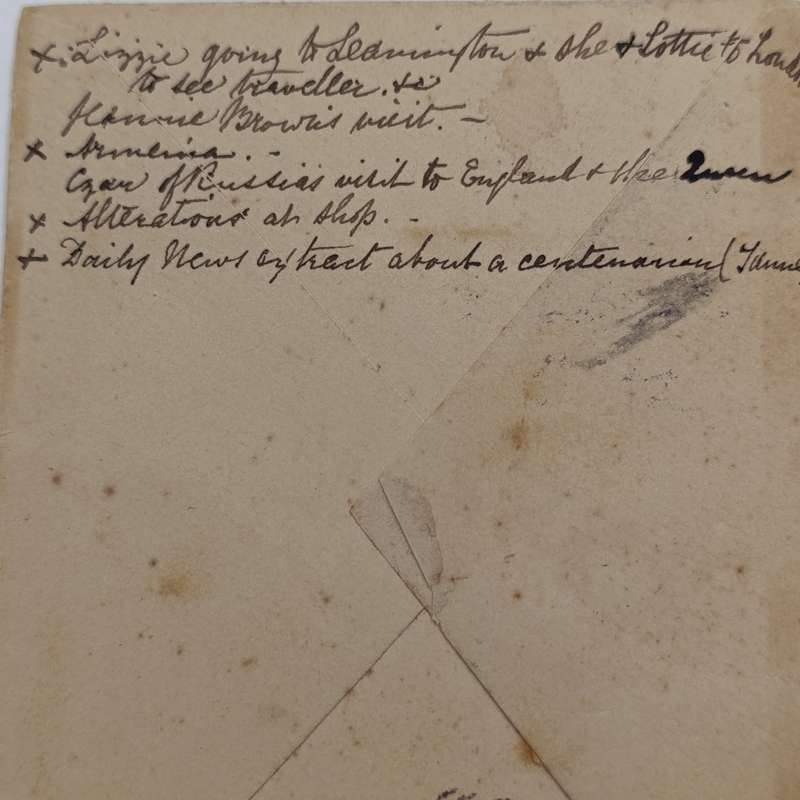 x Lizzie going to Leamington & she & Lottie to
to see traveller. &c
Brown's visit. –
x Armenia. –
Czar of Russia's visit to England & the Queen
x Alterations at shop. –
x Daily News extract about a centenarian (